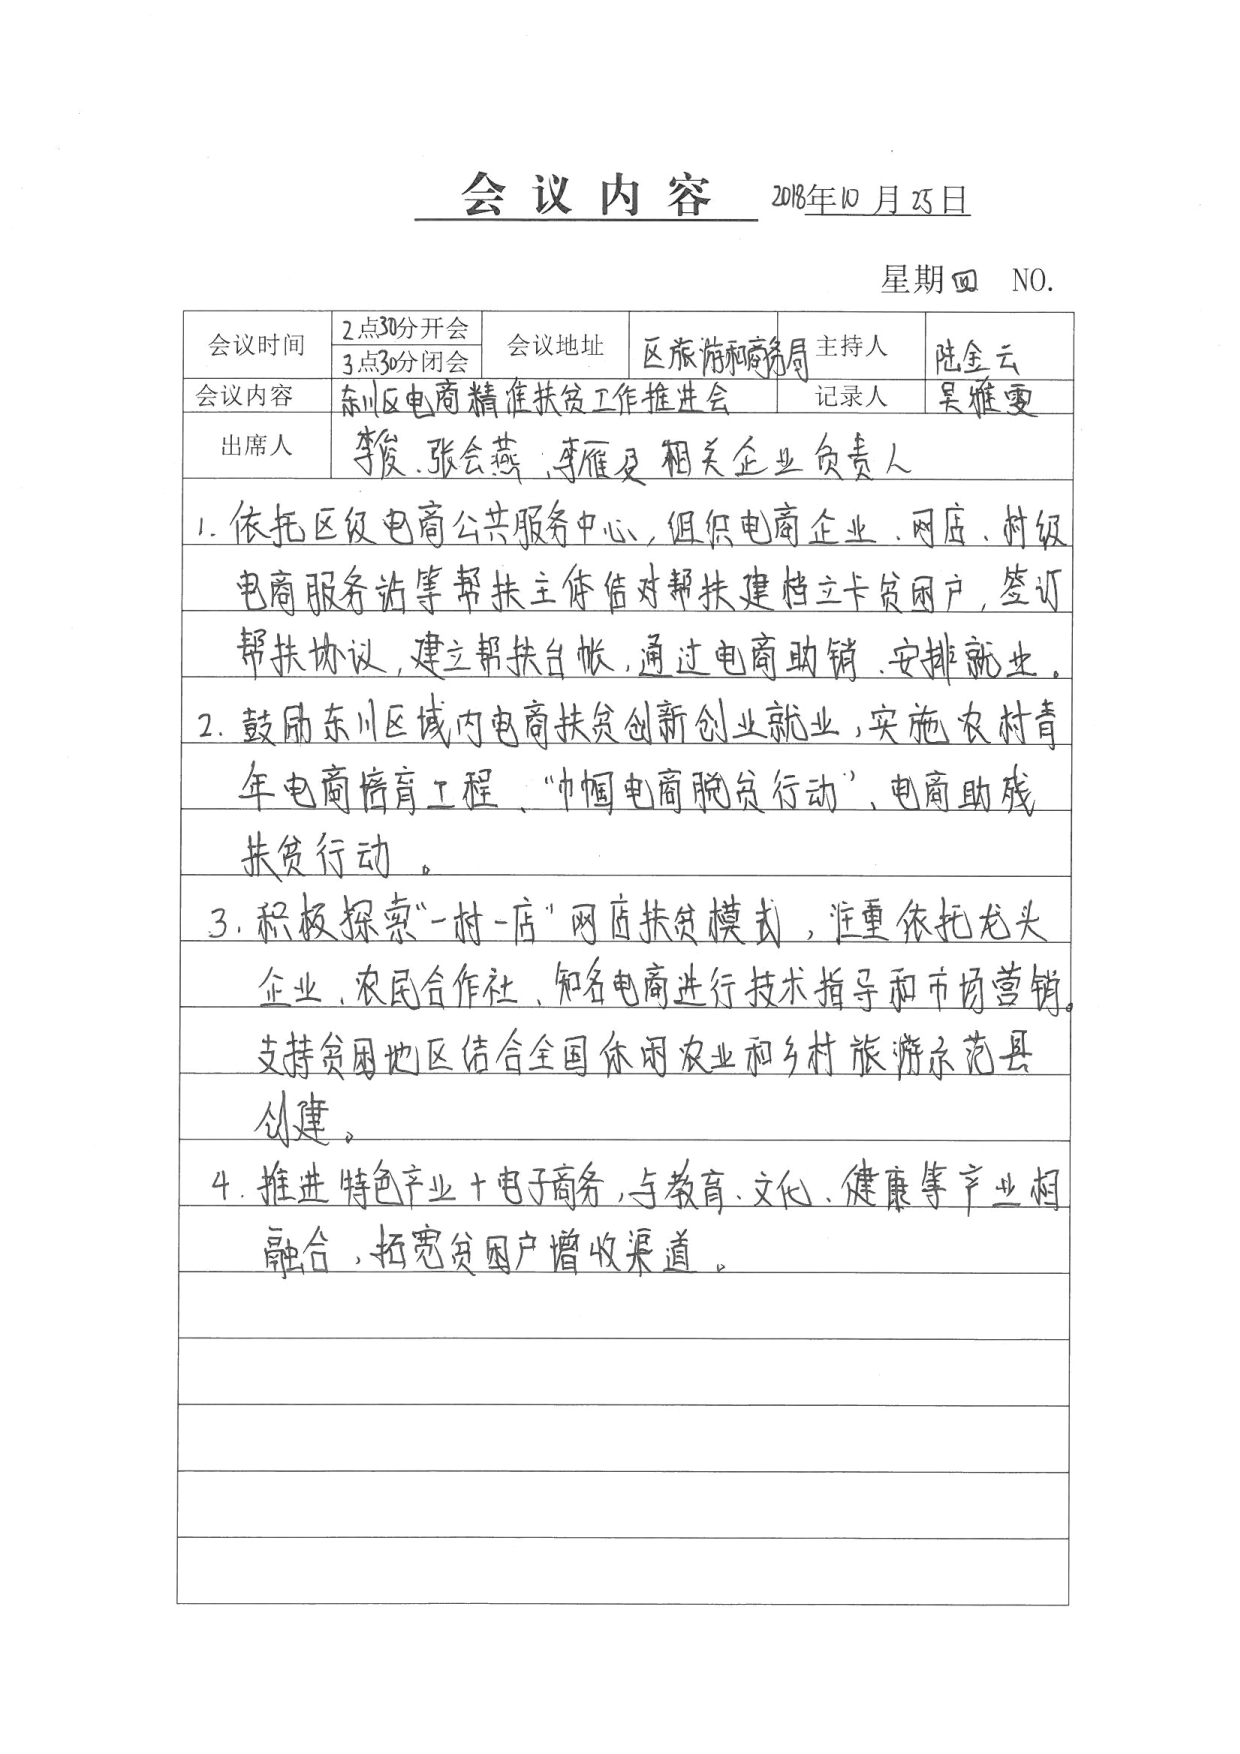 会议内容 2018年10月25日
星期四 NO.
会议时间 2点30分开会 会议地址 区旅游和商务局 主持人 陆金云
3点30分闭会
会议内容 东川区电商精准扶贫工作推进会 记录人 吴雅雯
出席人 李俊、张会燕、李雁及相关企业负责人
1. 依托区级电商公共服务中心,组织电商企业、网店、村级
电商服务站等帮扶主体结对帮扶建档立卡贫困户,签订
帮扶协议,建立帮扶台帐,通过电商助销、安排就业。
2. 鼓励东川区域内电商扶贫创新创业就业,实施农村青
年电商培育工程、“巾帼电商脱贫行动”、电商助残
扶贫行动。
3. 积极探索“一村一店”网店扶贫模式,注重依托龙头
企业、农民合作社、知名电商进行技术指导和市场营销。
支持贫困地区结合全国休闲农业和乡村旅游示范县
创建。
4. 推进特色产业+电子商务,与教育、文化、健康等产业相
融合,拓宽贫困户增收渠道。